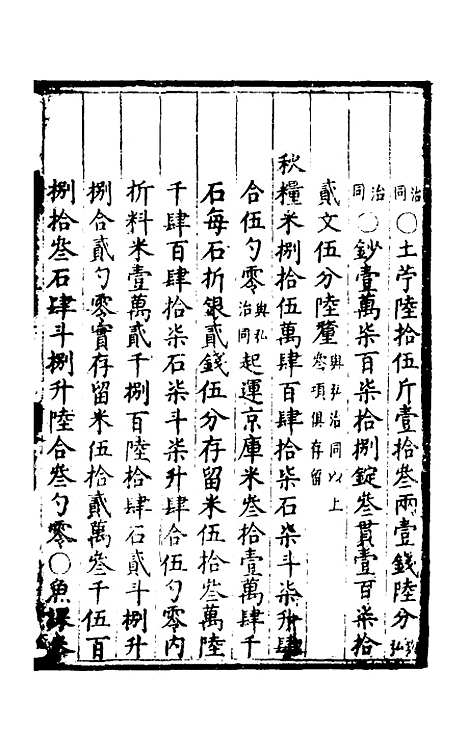 治同〇土苧陸拾伍斤壹拾叁兩壹錢陸分與弘
治同〇鈔壹萬柒百柒拾捌錠叁貫壹百柒拾
貳文伍分陸釐與弘治同以上叁項俱存留
秋糧米捌拾伍萬肆百肆拾柒石柒斗柒升肆
合伍勺零與弘治同起運京庫米叁拾壹萬肆千
石每石折銀貳錢伍分存留米伍拾叁萬陸
千肆百肆拾柒石柒斗柒升肆合伍勺零內
折料米壹萬貳千捌百陸拾肆石貳斗捌升
捌合貳勺零實存留米伍拾貳萬叁千伍百
捌拾叁石肆斗捌升陸合叁勺零〇魚課米